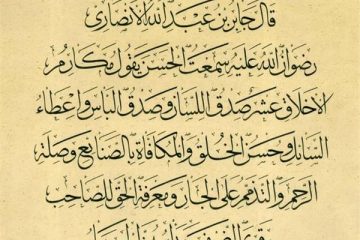 قال جابر بن عبد الله الأنصاري
رضوان الله عليه سمعت الحسن يقول مكارم
الأخلاق عشر صدق اللسان وصدق الباس وإعطاء
السائل وحسن الخلق والمكافاة بالصنايع وصلة
الرحم والتذمم على الجار ومعرفة الحق للصاحب